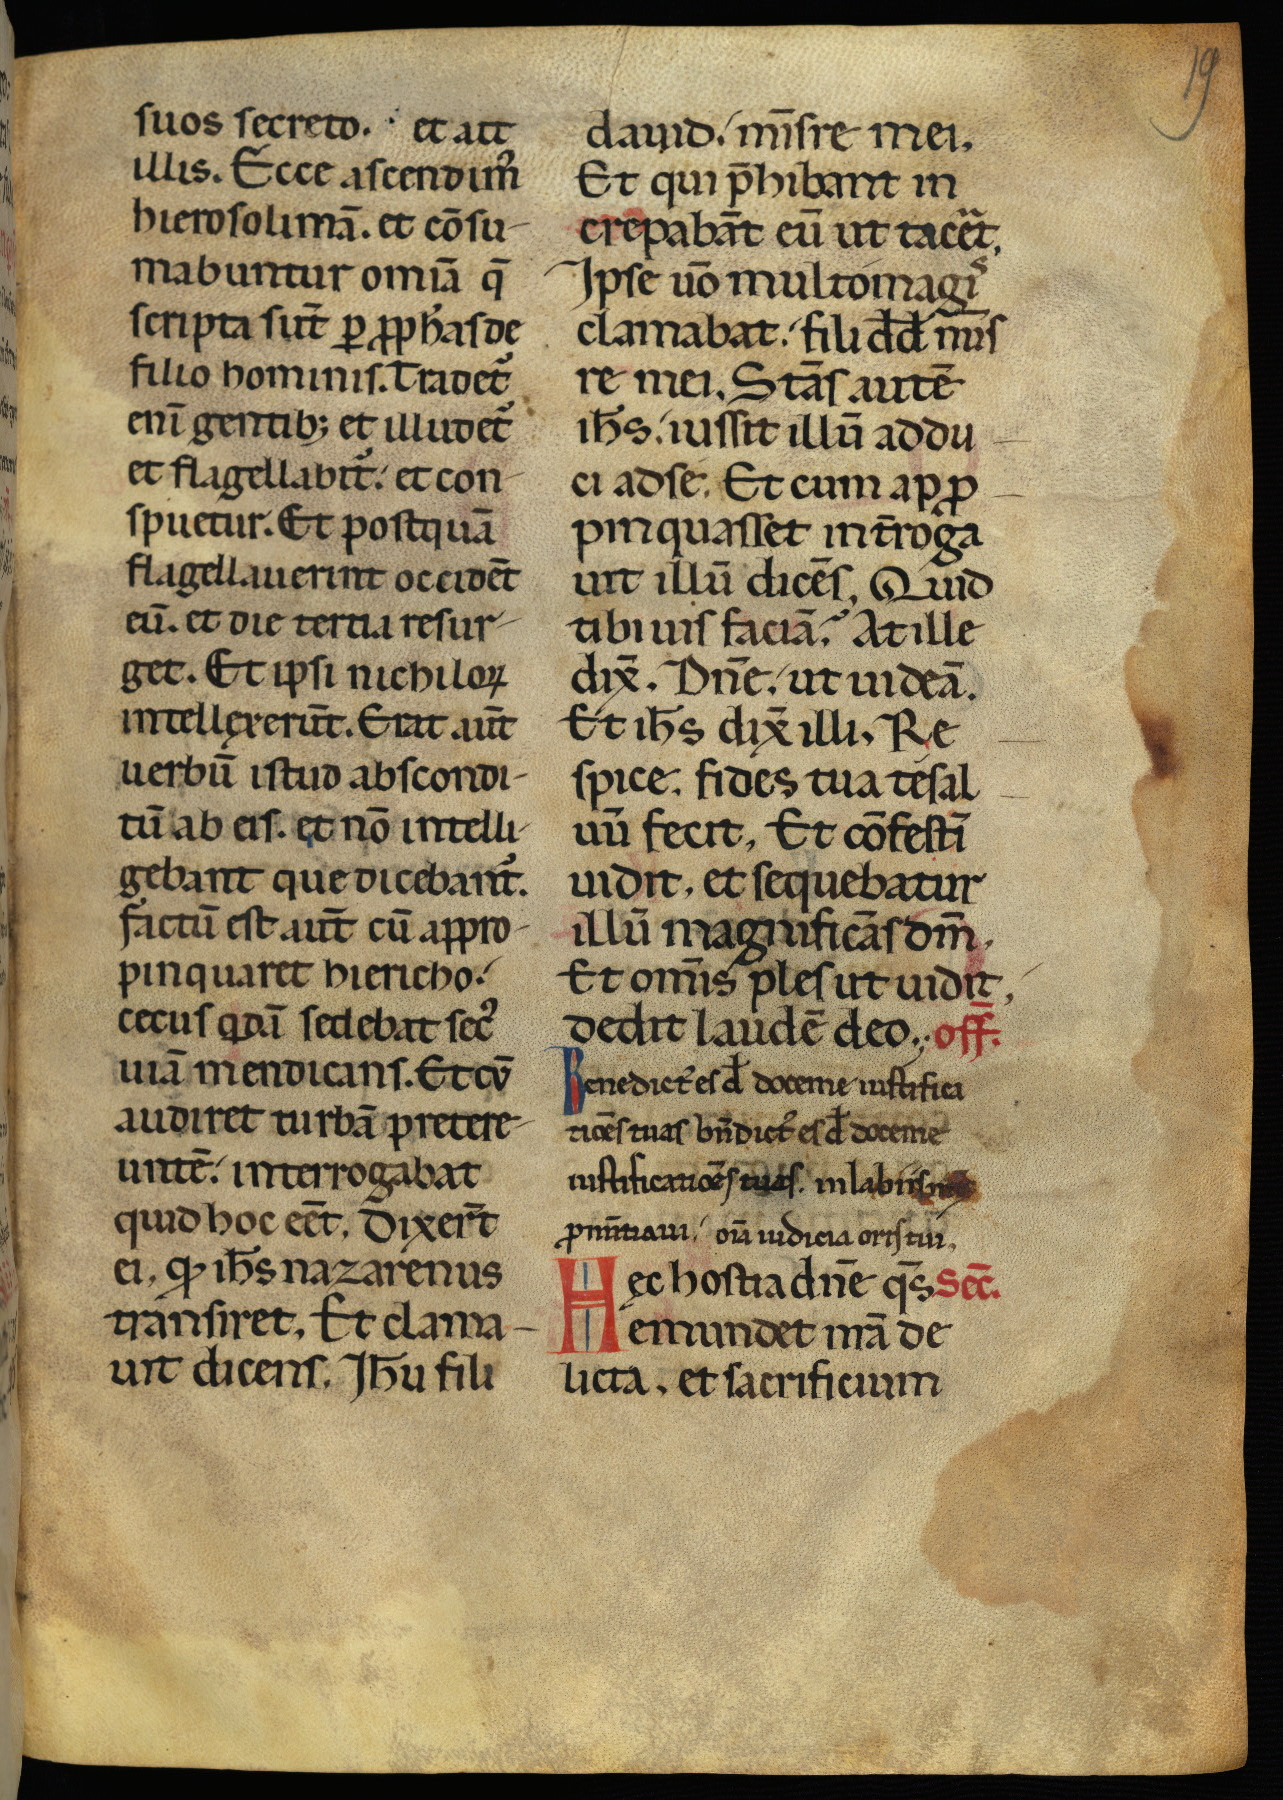 19
suos secreto. et ait
illis. Ecce ascendim᾽
hierosolimā. et cōsu-
mabuntur omīa q̄
scripta sūt ꝑ ꝓph̄as de
filio hominis. Tradet᷑
enī gentib; et illudet᷑
et flagellabit᷑. et con-
spuetur. Et postquā
flagellauerint occidēt
eū. et die tertia resur-
get. Et ipsi nichil oꝝ
intellęxerūt. Erat aūt
uerbū istud abscondi-
tū ab eis. et nō intelli-
gebant que dicebant᷑.
factū est aūt cū appro-
pinquaret hiericho.
cecus qdā sedebat sec᾽
uiā mendicans. Et cū
audiret turbā pretere-
untē. interrogabat
quid hoc eēt. Dixer̄t
ei, ꝙ ih̄s nazarenus
transiret. Et clama-
uit dicens. Ih̄u fili
dauid. mīsre mei.
Et qui p̄hibant in
crēpabāt eū ut tacēt.
Ipse uō multo magis
clamabat. fili dd̄ mīs
re mei. Stās autē
ih̄s. iussit illū addu-
ci ad se. Et cum apꝓ-
pinquasset int̄roga
uit illū dicēs, Quid
tibi uis faciā. At ille
dix̄. Dn̄e. ut uideā.
Et ih̄s dix̄ illi, Re-
spice. fides tua te sal-
uū fecit, Et cōfestī
uidit, et sequebatur
illū magnificās dm̄.
Et omīs ples ut uidit,
dedit laudē deo. off̄.
Benedict᾽ es d̄ doce me iustifica
tiōes tuas bn̄dict᾽ es d̄ doce me
iustificatiōes tuas. in labiis
pnūtiaui. oīa iudicia oris tui.
Hęc hostia dn̄e qs̄ Sec̄.
emundet nr̄a de
licta, et sacrificium